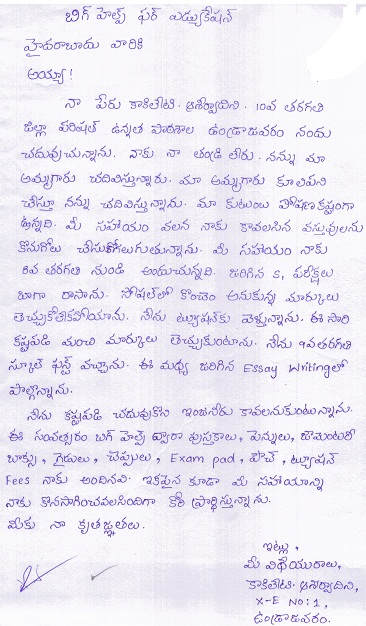 బిగ్ హెల్ప్ ఫర్ ఎడ్యుకేషన్
హైదరాబాదు వారికి
అయ్యా!
నా పేరు కాకిలేటి. ఆశీర్వాదిని. 10వ తరగతి
జిల్లా పరిషత్ ఉన్నత పాఠశాల ఉండ్రాడవరం నందు
చదువుచున్నాను. నాకు నా తండ్రి లేరు. నన్ను మా
అమ్మగారు చదివిస్తున్నారు. మా అమ్మగారు కూలిపని
చేస్తూ నన్ను చదివిస్తున్నారు. మా కుటుంబ పోషణ కష్టంగా
ఉన్నది. మీ సహాయం వలన నాకు కావలసిన వస్తువులను
కొనుగోలు చేసుకోగలుగుతున్నాను. మీ సహాయం నాకు
6వ తరగతి నుండి అందుచున్నది. జరిగిన S, పరీక్షలు
బాగా రాసాను. సోషల్‌లో కొంచెం అనుకున్న మార్కులు
తెచ్చుకోలేకపోయాను. నేను ట్యూషన్‌కు వెళ్తున్నాను. ఈ సారి
కష్టపడి మంచి మార్కులు తెచ్చుకుంటాను. నేను 9వతరగతి
స్కూల్ ఫస్ట్ వచ్చాను. ఈ మధ్య జరిగిన Essay Writingలో
పాల్గొన్నాను.
నేను కష్టపడి చదువుకొని ఇంజనీరు కావలనుకుంటున్నాను.
ఈ సంవత్సరం బిగ్ హెల్ప్ ద్వారా పుస్తకాలు, పెన్నులు, జామెంటరీ
బాక్సు, గైడులు, చెప్పులు, Exam pad, పౌచ్, ట్యూషన్
Fees నాకు అందినవి. ఇకపైన కూడా మీ సహాయాన్ని
నాకు కొనసాగించవలసిందిగా కోరి ప్రార్థిస్తున్నాను.
మీకు నా కృతజ్ఞతలు.
ఇట్లు,
మీ విధేయురాలు,
కాకిలేటి. ఆశీర్వాదిని,
X-E NO: 1,
ఉండ్రాడవరం.